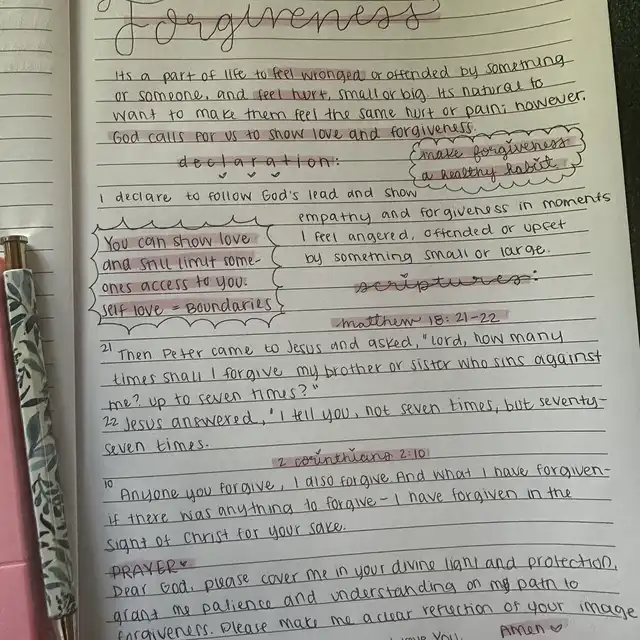 Forgiveness
Its a part of life to feel wronged or offended by something
or someone, and feel hurt, small or big. Its natural to
want to make them feel the same hurt or pain; however,
God calls for us to show love and forgiveness.
declaration:
make forgiveness
a healthy habit
I declare to follow God's lead and show
empathy and forgiveness in moments
I feel angered, offended or upset
by something small or large.
You can show love
and still limit some-
ones access to you.
Self love = Boundaries
scriptures:
matthew 18:21-22
21 Then Peter came to Jesus and asked, "Lord, how many
times shall I forgive my brother or sister who sins against
me? up to seven times?"
22 Jesus answered, "I tell you, not seven times, but seventy-
seven times.
2 corinthians 2:10
10 Anyone you forgive, I also forgive. And what I have forgiven-
if there was anything to forgive- I have forgiven in the
sight of Christ for your sake.
PRAYER♥
Dear God, please cover me in your divine light and protection,
grant me patience and understanding on my path to
forgiveness. Please make me a clear reflection of your image
love you, Amen ♡